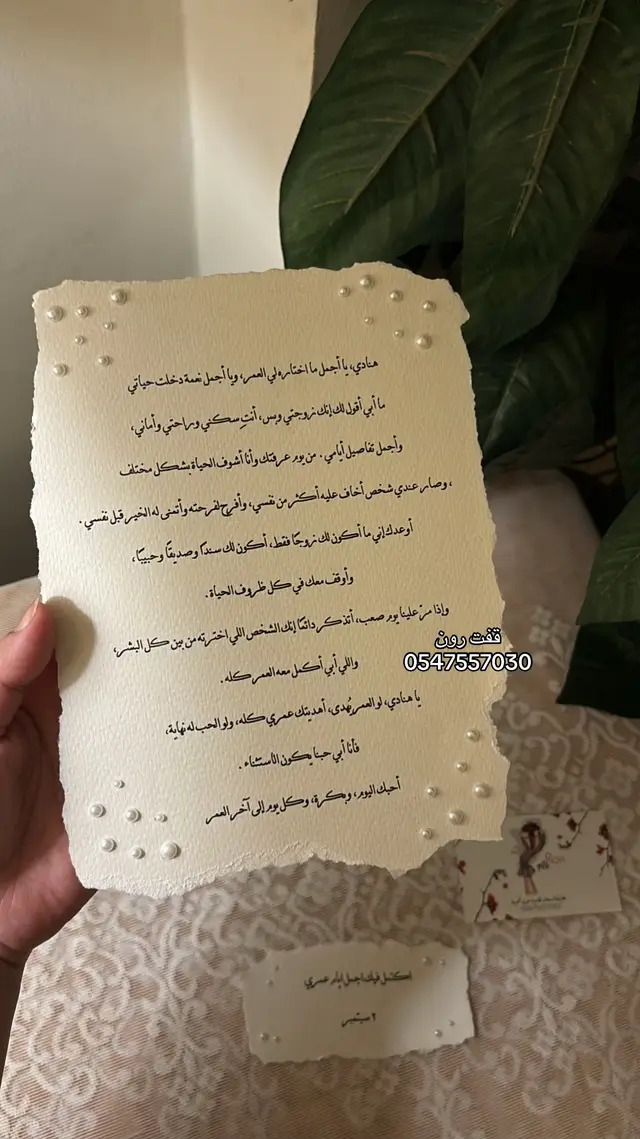 هنادي، يا أجمل ما اختاره لي العمر، ويا أجمل نعمة دخلت حياتي
ما أبي أقول لك إنك زوجتي وبس، أنتِ سكني وراحتي وأماني،
وأجمل تفاصيل أيامي . من يوم عرفتك وأنا أشوف الحياة بشكل مختلف
، وصار عندي شخص أخاف عليه أكثر من نفسي، وأفرح لفرحته وأتمنى له الخير قبل نفسي .
أوعدك إني ما أكون لك زوجًا فقط، أكون لك سندًا وصديقًا وحبيبًا،
وأوقف معك في كل ظروف الحياة.
وإذا مرّ علينا يوم صعب، أتذكر دائمًا إنك الشخص اللي اخترته من بين كل البشر،
واللي أبي أكمل معه العمر كله .
يا هنادي، لو العمر يُهدى، أهديتك عمري كله، ولو الحب له نهاية،
فأنا أبي حبنا يكون الاستثناء .
أحبك اليوم، وبكرة، وكل يوم إلى آخر العمر
قفت رون
0547557030
اكتمل فيك اجمل ايام عمري
٢ سبتمبر